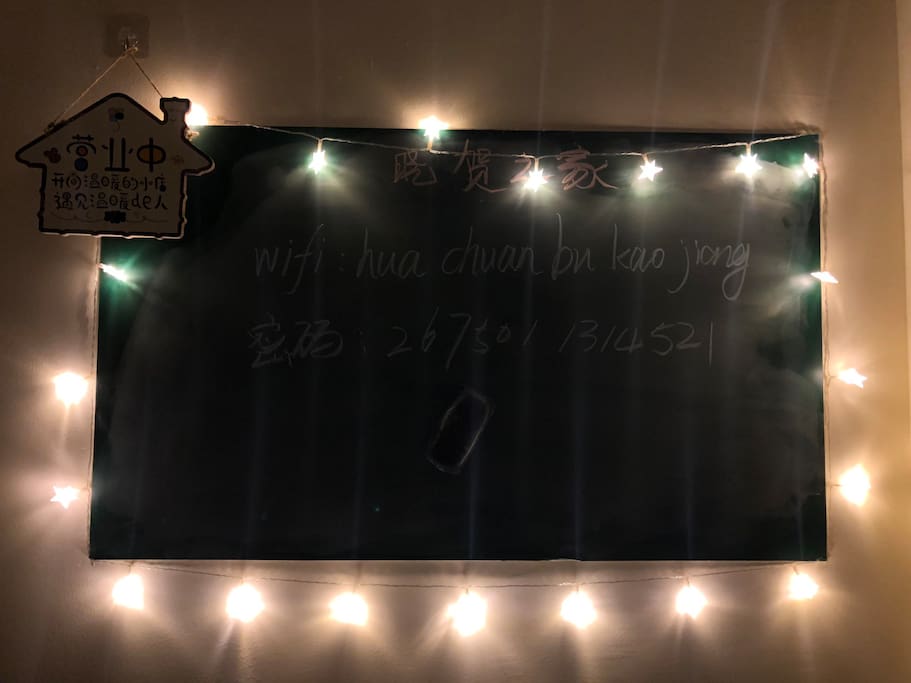 营业中
开间温暖的小店
遇见温暖de人
晓贺之家
wifi: hua chuan bu kao jiang
密码: 267501 1314521